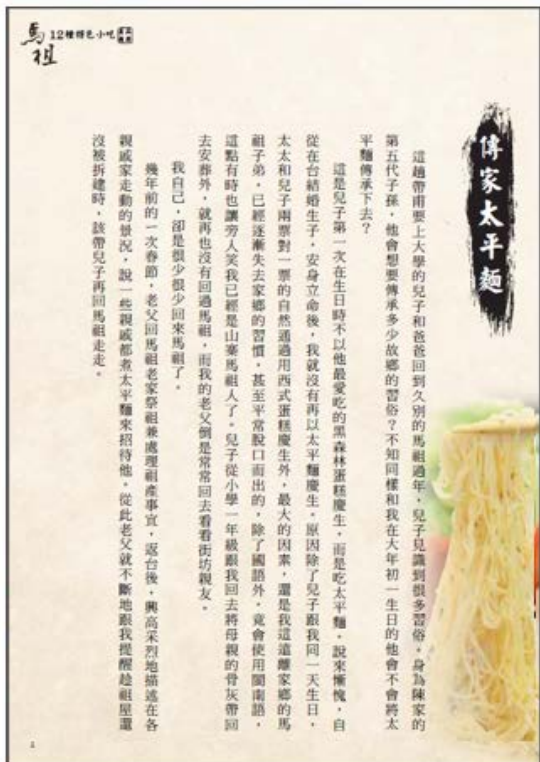 馬祖
12種特色小吃
傳家太平麵
這趟帶甫要上大學的兒子和爸爸回到久別的馬祖過年，兒子見識到很多習俗。身為陳家的
第五代子孫，他會想要傳承多少故鄉的習俗？不知同樣和我在大年初一生日的他會不會將太
平麵傳承下去？
這是兒子第一次在生日時不以他最愛吃的黑森林蛋糕慶生，而是吃太平麵，說來慚愧，自
從在台結婚生子，安身立命後，我就沒有再以太平麵慶生。原因除了兒子跟我同一天生日，
太太和兒子兩票對一票的自然通過用西式蛋糕慶生外，最大的因素，還是我這遠離家鄉的馬
祖子弟，已經逐漸失去家鄉的習慣，甚至平常脫口而出的，除了國語外，竟會使用閩南語，
這點有時也讓旁人笑我已經是山寨馬祖人了。兒子從小學一年級跟我回去將母親的骨灰帶回
去安葬外，就再也沒有回過馬祖，而我的老父倒是常常回去看看街坊親友。
我自己，卻是很少很少回來馬祖了。
幾年前的一次春節，老父回馬祖老家祭祖兼處理祖產事宜，返台後，興高采烈地描述在各
親戚家走動的景況，說一些親戚都煮太平麵來招待他。從此老父就不斷地跟我提醒趁祖屋還
沒被拆建時，該帶兒子再回馬祖走走。